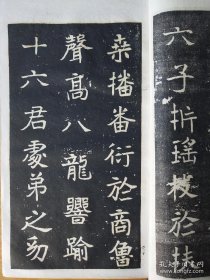 六子析瑤枝於
播番衍於商魯
聲髙八龍響踰
十六君處弟之㓜